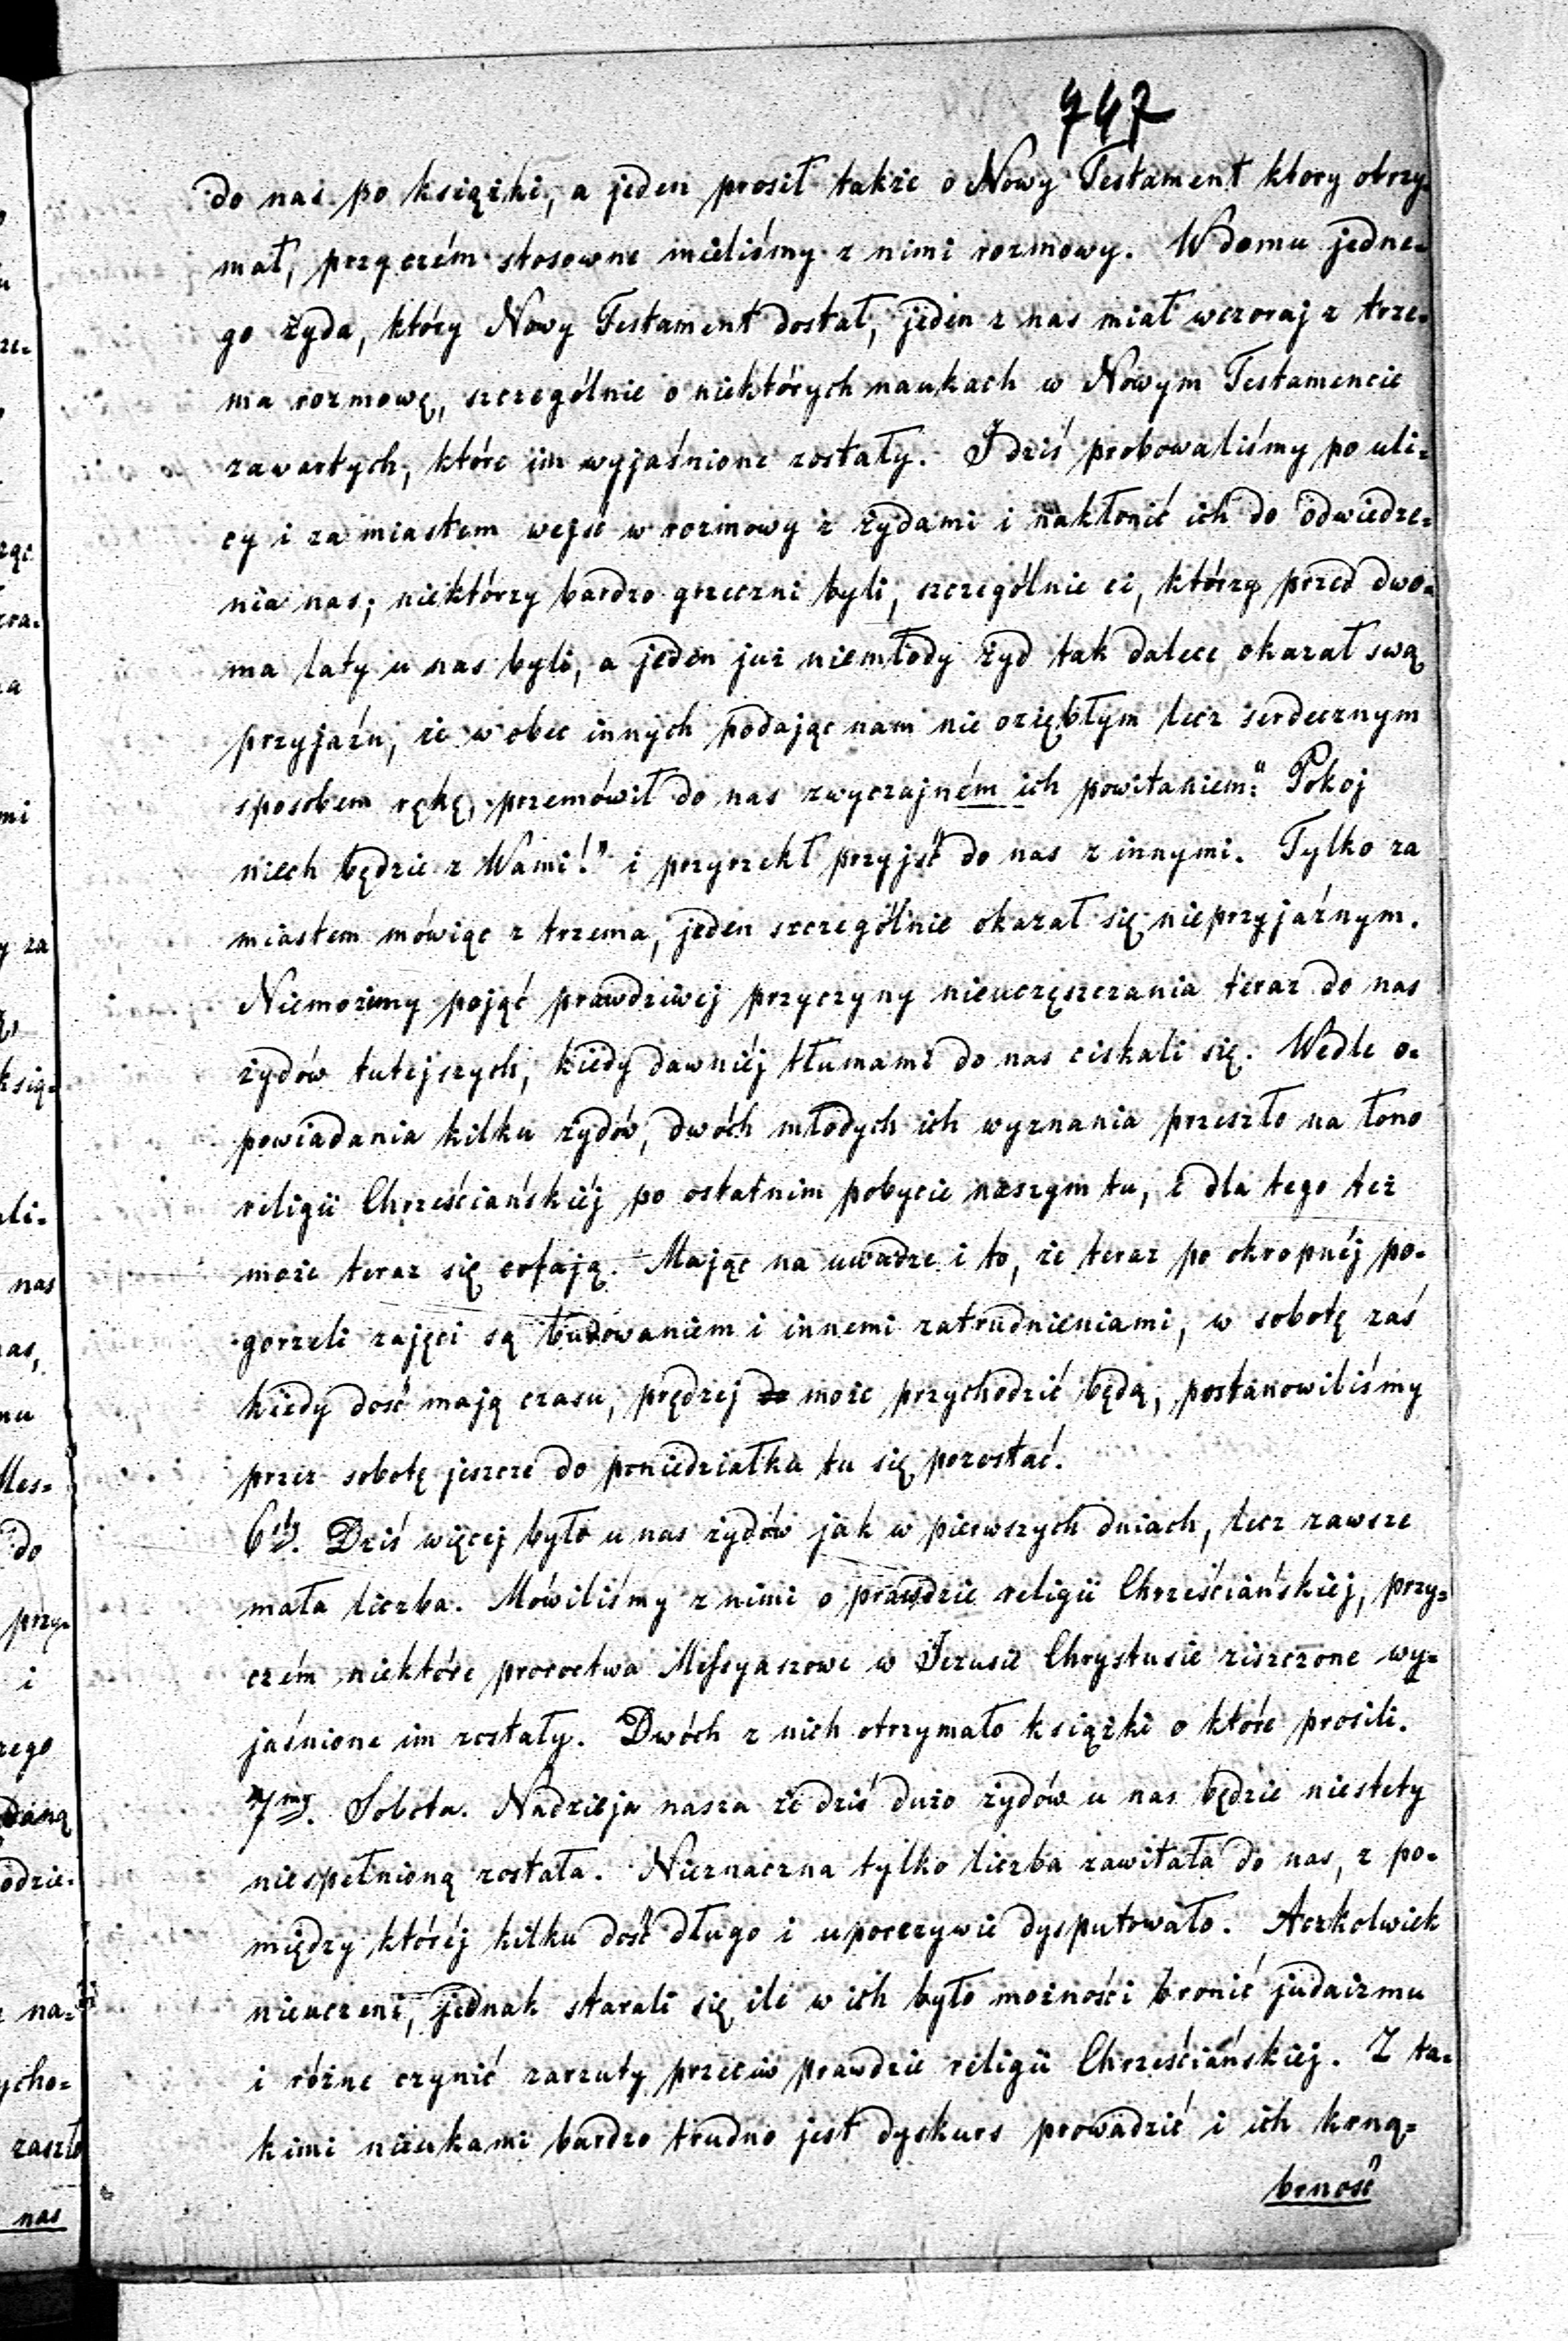 747
do nas po książki, a jeden prosił także o Nowy Testament ktory otrzy-
mał, przyczém stosowne mieliśmy z nimi rozmowy. W domu jedne-
go żyda, który Nowy Testament dostał, jeden z nas miał wczoraj z trze-
ma rozmowę, szczególnie o niektórych naukach w Nowym Testamencie
zawartych, które im wyjaśnione zostały. I dziś probowaliśmy po uli-
cy i za miastem wejść w rozmowy z żydami i nakłonić ich do odwiedze-
nia nas; niektórzy bardzo grzeczni byli, szczególnie ci, którzy przed dwo-
ma laty u nas byli, a jeden już niemłody żyd tak dalece okazał swą
przyjaźń, że w obec innych podając nam nie oziębłym lecz serdecznym
sposobem rękę, przemówił do nas zwyczajném ich powitaniem: "Pokoj
niech będzie z Wami!" i przyrzekł przyjść do nas z innymi. Tylko za
miastem mówiąc z trzema, jeden szczególnie okazał się nieprzyjaźnym.
Niemożemy pojąć prawdziwej przyczyny nieuczęszczania teraz do nas
żydów tutejszych, kiedy dawniéj tłumami do nas ciskali się. Wedle o-
powiadania kilku żydów, dwóch młodych ich wyznania przeszło na łono
religii Chrześciańskiéj po ostatnim pobycie naszym tu, i dla tego też
może teraz się cofają. Mając na uwadze i to, że teraz po okropnéj po-
gorzeli zajęci są budowaniem i innemi zatrudnieniami, w sobotę zaś
kiedy dość mają czasu, prędzej do może przychodzić będą, postanowiliśmy
przez sobotę jeszcze do poniedziałku tu się pozostać.
6sty. Dziś więcej było u nas żydów jak w pierwszych dniach, lecz zawsze
mała liczba. Mówiliśmy z nimi o prawdzie religii Chrześciańskiej, przy-
czém niektóre proroctwa Messyaszowe w Jezusie Chrystusie ziszczone wy-
jaśnione im zostały. Dwóch z nich otrzymało książki o które prosili.
7my. Sobota. Nadzieja nasza że dziś dużo żydów u nas będzie niestety
niespełnioną została. Nieznaczna tylko liczba zawitała do nas, z po-
między któréj kilku dość długo i uporczywie dysputowało. Aczkolwiek
nieuczeni, jednak starali się ile w ich było możności bronić judaizmu
i różne czynić zarzuty przeciw prawdzie religii Chrześciańskiej. Z ta-
kimi nieukami bardzo trudno jest dyskurs prowadzić i ich krną-
brność